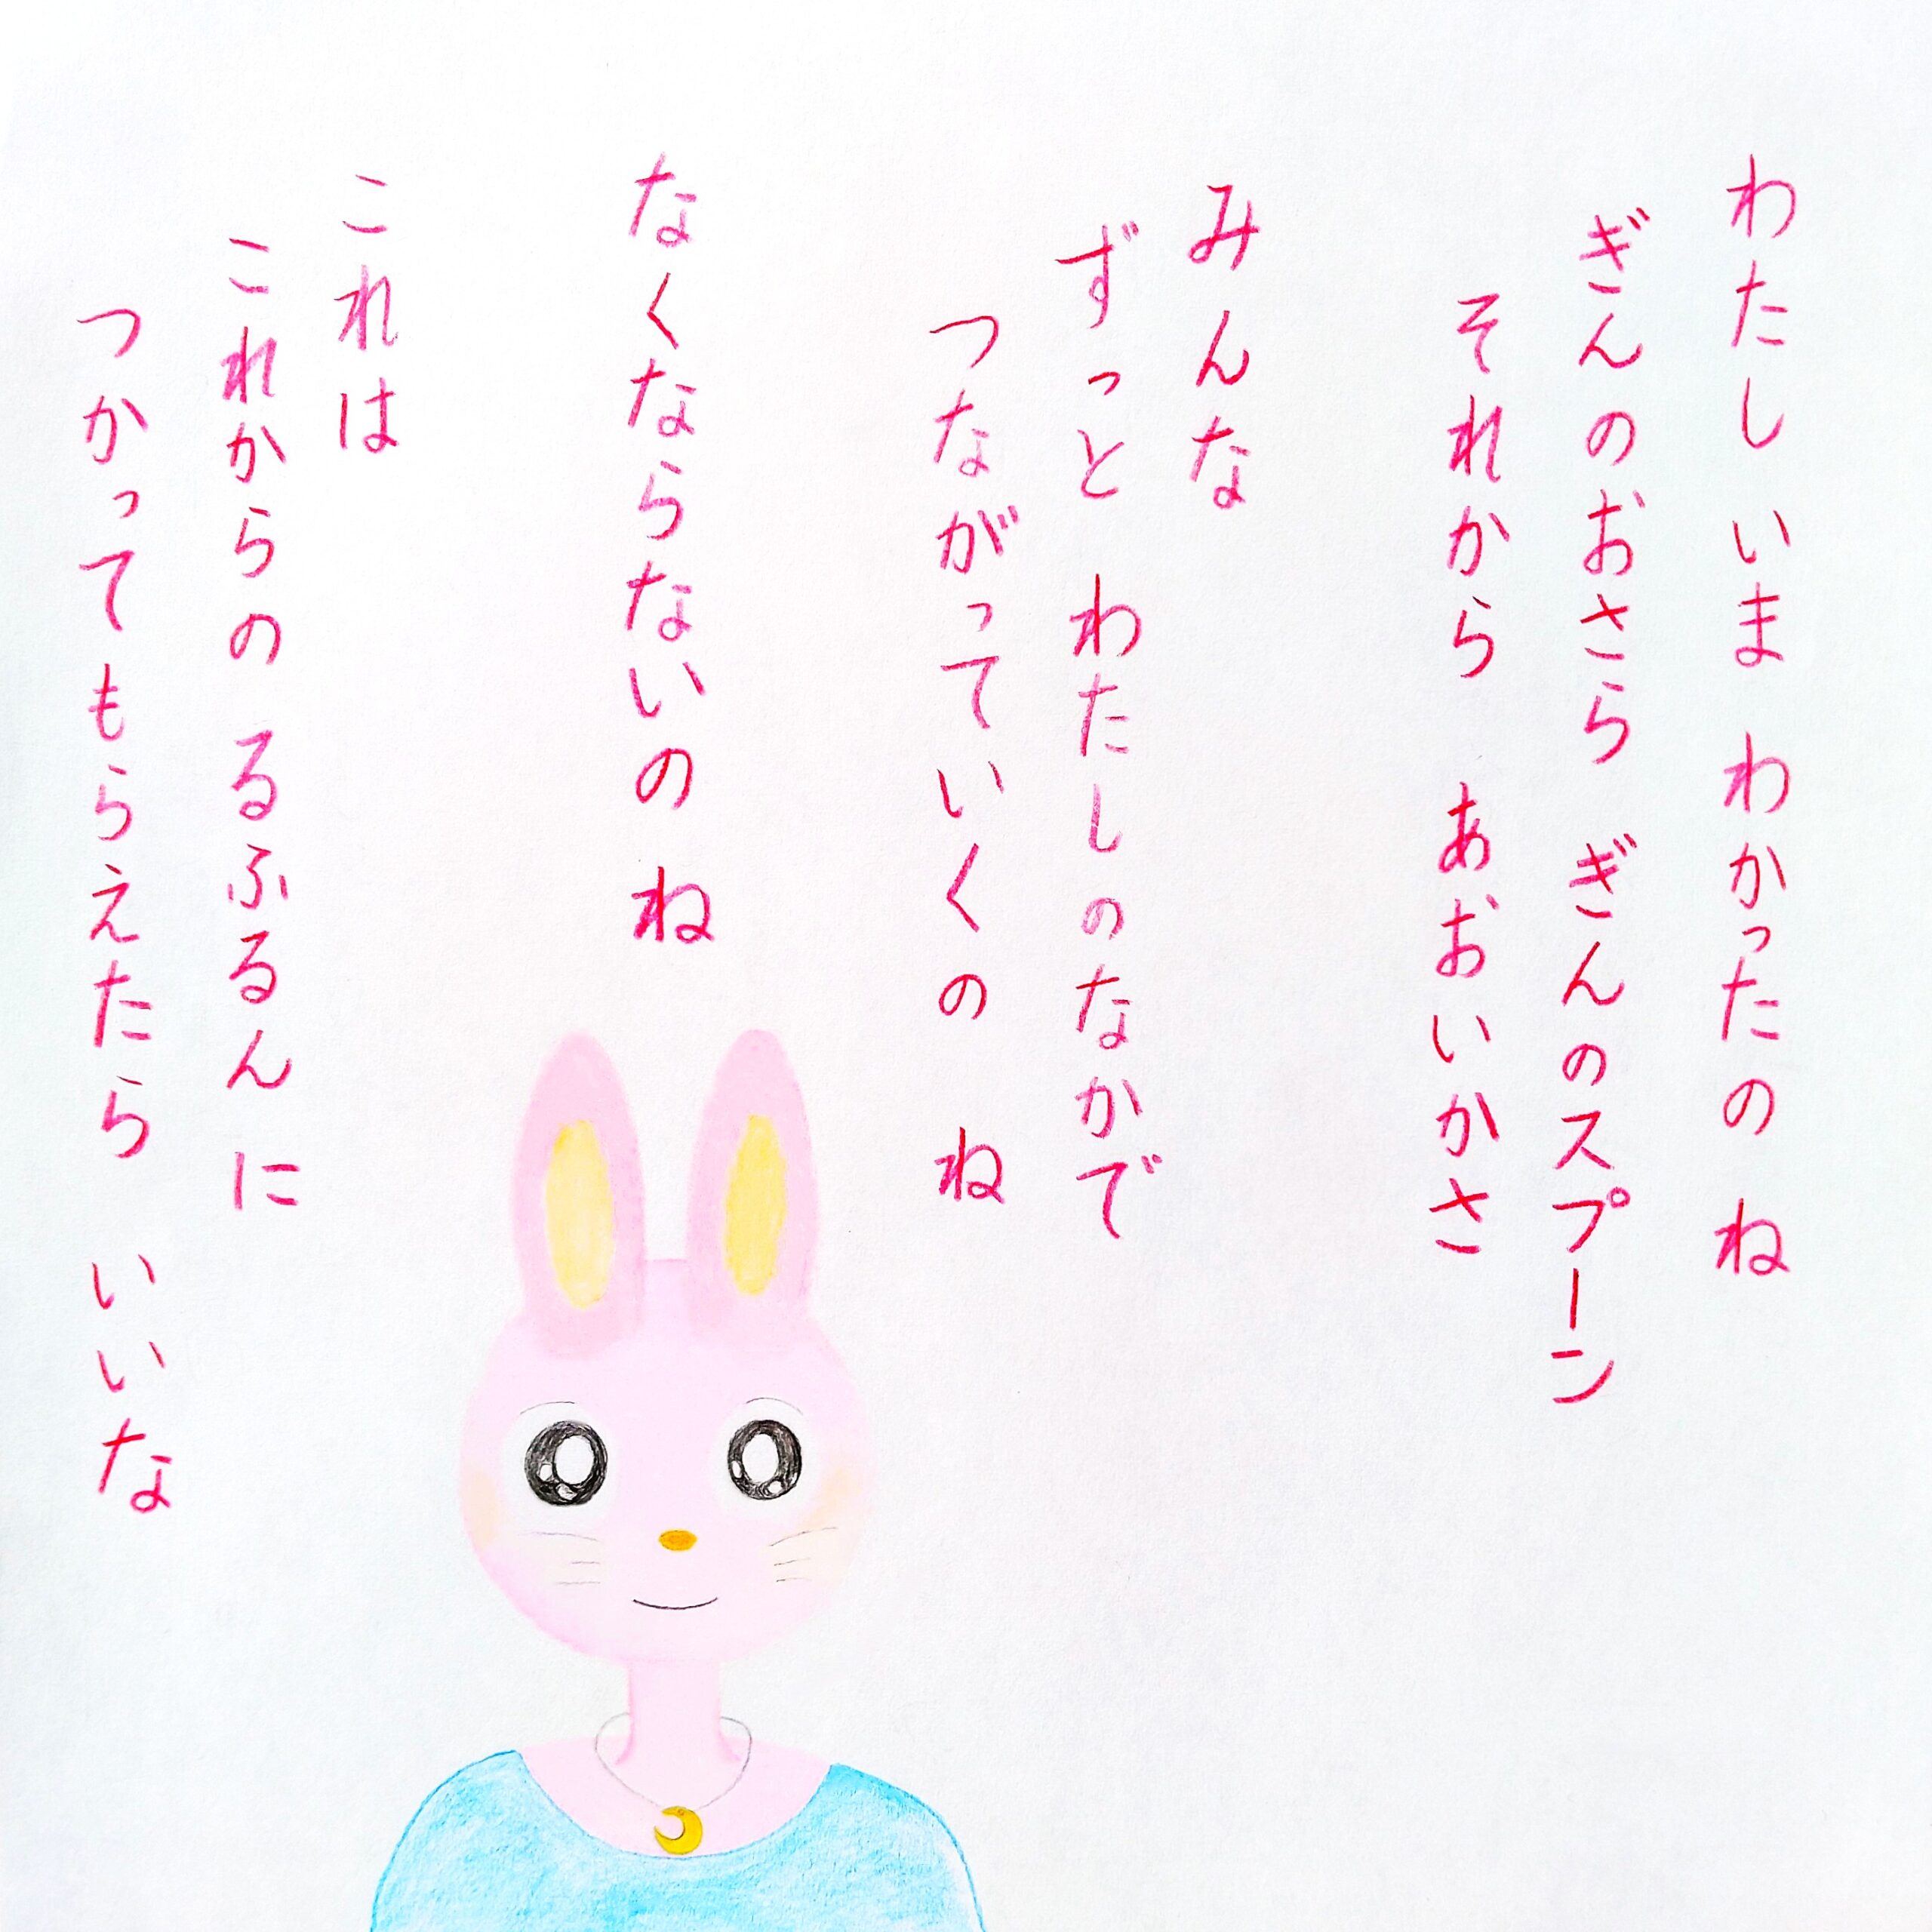 わたし いま わかったの ね
ぎんのおさら ぎんのスプーン
それから あおいかさ
みんな
ずっと わたしのなかで
つながっていくの ね
なくならないの ね
これは
これからの るふるん に
つかってもらえたら いいな